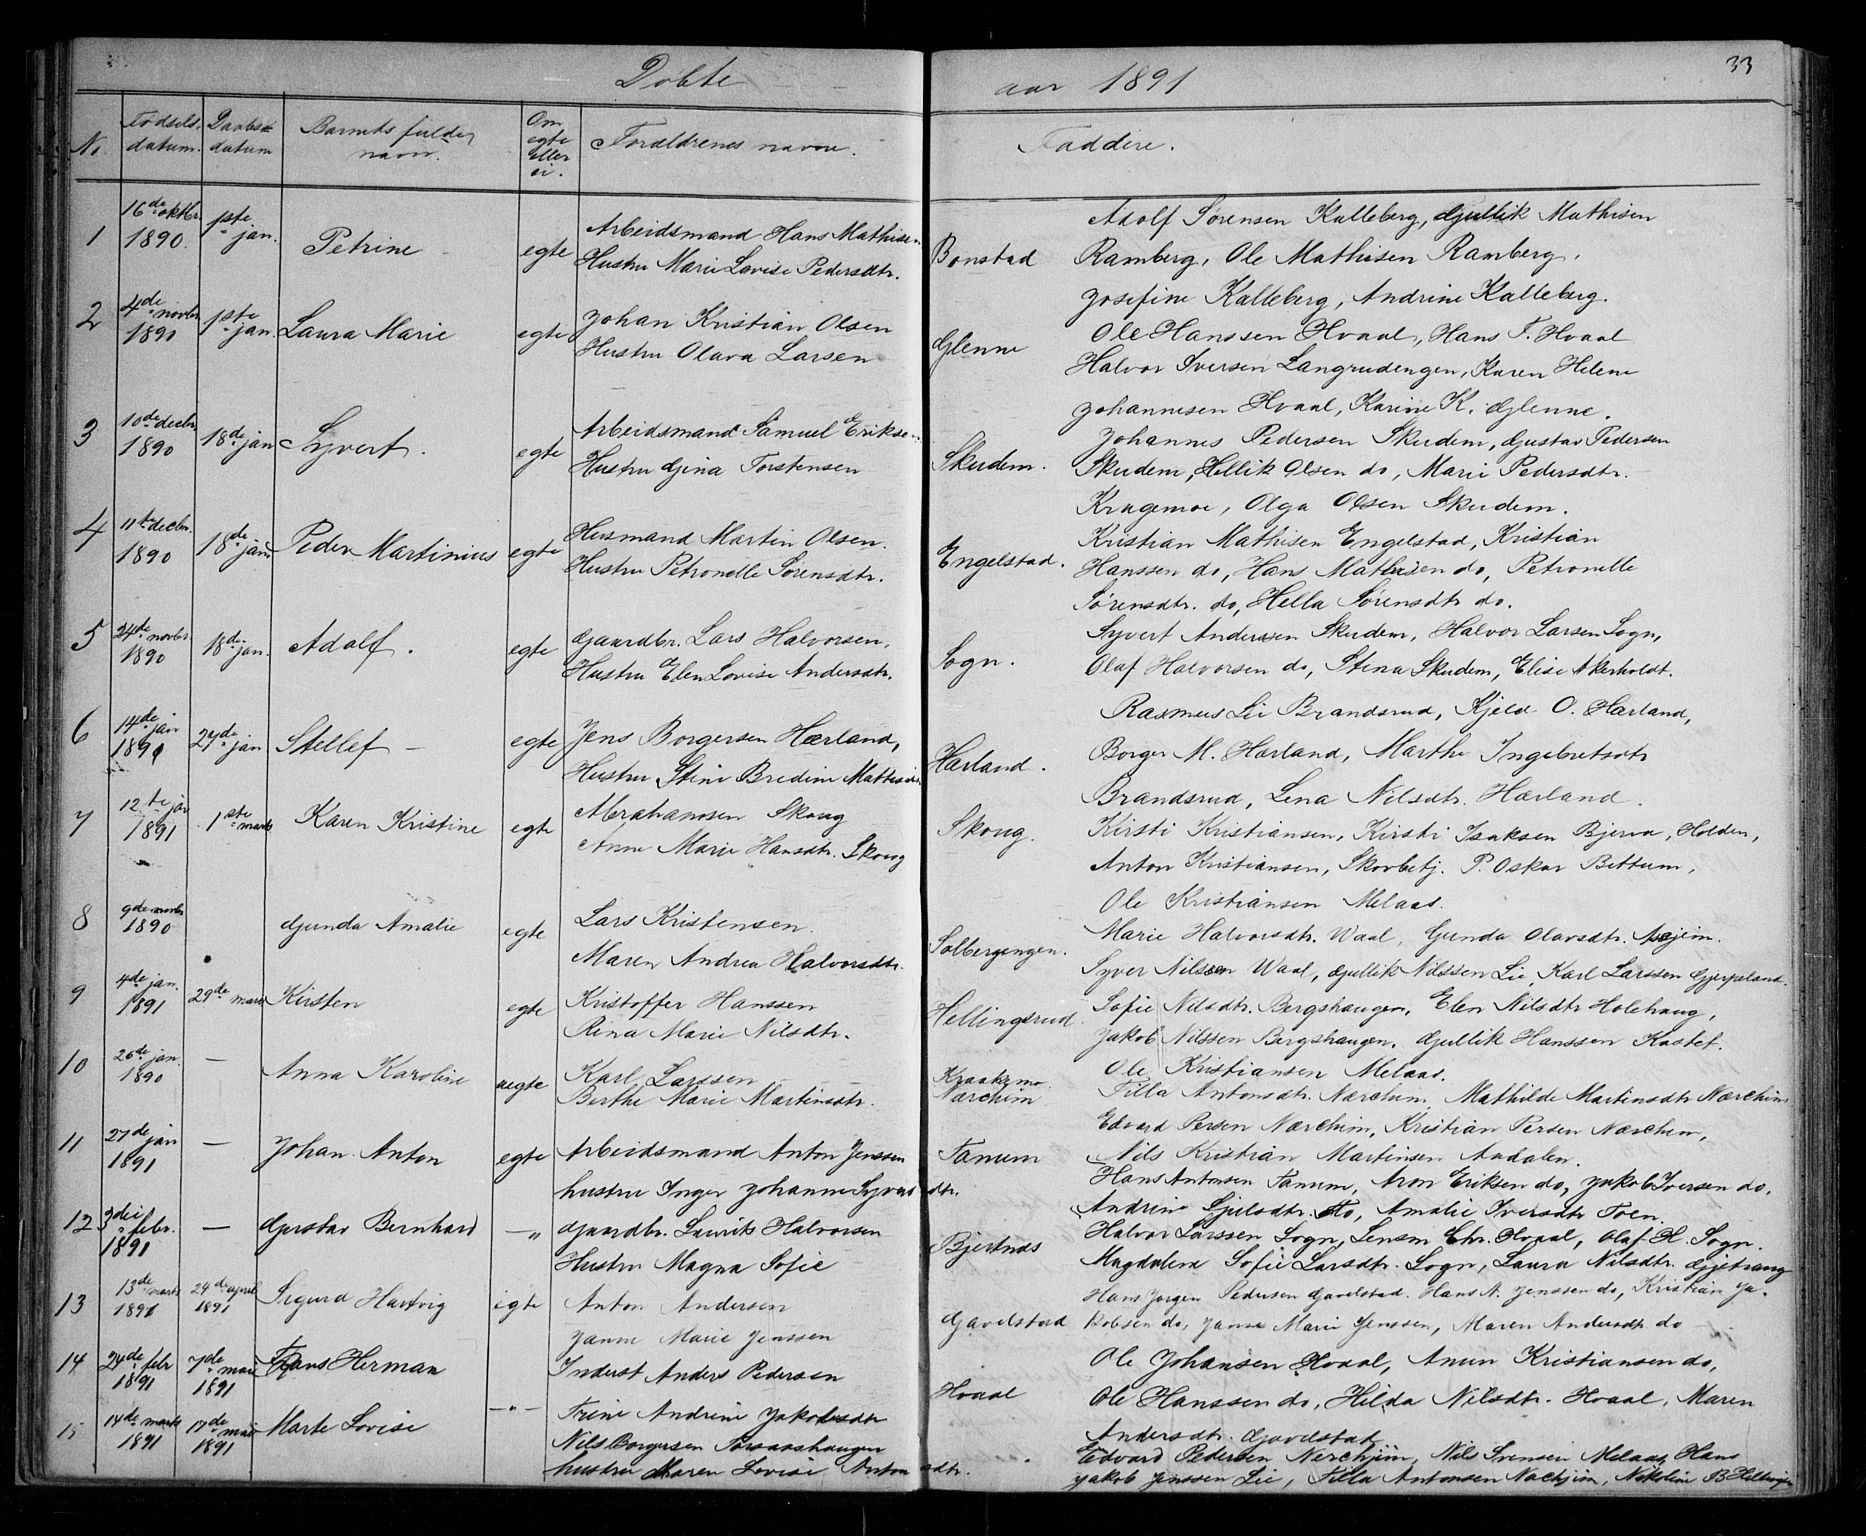 33
Døbte aar 1891
No. Fødsels- datum. Daabs- datum Barnets fulde navn. Om egte eller ei. Forældrenes navne. Faddere.
1 16de oktbr. 1890. 1ste jan. Petrine egte Arbeidsmand Hans Mathisen
Hustru Marie Lovise Pedersdtr. Bonstad
Adolf Sørensen Kalleberg, Gullik Mathisen
Ramberg, Ole Mathisen Ramberg,
Josefine Kalleberg, Andrine Kalleberg.
2 4de novbr. 1890 1ste jan. Laura Marie egte Johan Kristian Olsen
Hustru Olava Larsen Glenne
Ole Hanssen Hvaal, Hans T. Hvaal
Halvor Iversen Langrudengen, Karen Helene
Johannesen Hvaal, Karine K. Glenne.
3 10de decbr. 1890 18de jan Syvert. egte Arbeidsmand Samuel Eriksen
Hustru Gina Torstensen Skudem.
Johannes Pedersen Skudem, Gustav Pedersen
Skudem, Hellik Olsen do, Marie Pedersdtr.
Kragemoe, Olga Olsen Skudem.
4 11te decbr. 1890 18de jan. Peder Martinius egte Husmand Martin Olsen.
Hustru Petronelle Sørensdtr. Engelstad.
Kristian Mathisen Engelstad, Kristian
Hanssen do, Hans Mathisen do, Petronelle
Sørensdtr. do, Hella Sørensdtr do.
5 24de novbr 1890 18de jan. Adolf. egte Gaardbr. Lars Halvorsen,
Hustru Elen Lovise Andersdtr. Sogn.
Syvert Anderssen Skudem, Halvor Larsen Sogn,
Olaf Halvorsen do, Stina Skudem, Elise Akerholdt.
6 14de jan 1891 27de jan Stellef egte Jens Borgersen Hærland,
Hustru Stine Bredine Hærland.
Rasmus Lie Brandsrud, Kjeld O. Hærland,
Borger M. Hærland, Marthe Ingebretsdtr
Brandsrud, Lena Nilsdtr. Hærland.
7 12te jan 1891 1ste marts Karen Kristine egte Abrahamsen Skoug
Anne Marie Hansdtr. Skoug Skoug.
Kirsti Kristiansen, Kirsti Isaksen Bjerva, Holden,
Anton Kristiansen, Skovbetj. P. Oskar Bettum,
Ole Kristiansen Melaas.
8 9de novbr 1890 Gunda Amalie egte Lars Kristensen.
Maren Andrea Halvorsdtr. Solbergengen.
Marie Halvorsdtr. Waal, Gunda Olavsdtr.
Syver Nilssen Waal, Gullik Nilssen Lie, Karl Larssen Gjerpeland.
9 4de jan. 1891 29de mars Kirsten egte Kristoffer Hanssen
Rina Marie Nilsdtr. Hellingsrud
Sofie Nilsdtr. Bergshaugen, Elen Nilsdtr Holehaug,
Jakob Nilssen Bergshaugen, Gullik Hanssen Kastet.
Ole Kristiansen Melaas.
10 26de jan. 1890 — Anna Karoline uegte Karl Larssen
Berthe Marie Martinsdtr. Kraakemo Nærchim
Tilla Antonsdtr. Nærchim, Mathilde Martinsdtr Nærchim
Edvard Persen Nærchim, Kristian Persen Nærchim,
Nils Kristian Martinsen Aadalen.
11 27de jan 1891 — Johan Anton egte Arbeidsmand Anton Jenssen
hustru Inger Johanne Syversdtr. Tanum
Hans Antonsen Tanum, Aron Eriksen do, Jakob Iversen do.
Andrine Gjulsdtr. do, Amalie Iversdtr Foen.
12 3die febr. 1891 — Gustav Bernhard —„ Gaardbr. Laurits Halvorsen
Hustru Magna Sofie Bjertnæs
Halvor Larssen Sogn, Lensm Chr. Hvaal, Olaf H. Sogn.
Magdalena Sofie Larsdtr. Sogn, Laura Nilsdtr.
13 13de marts 1891 24de april 1891 Sigurd Hartvig egte Anton Andersen
Janne Marie Jenssen Gavelstad
Hans Jørgen Pedersen Gavelstad. Hans A. Jenssen do, Kristian Ja-
kobsen do, Janse Marie Jenssen, Maren Andersdtr do
14 24de febr 1891 7de mai 1891 Frans Herman —„— Inderst Anders Pedersen
Trine Andrine Jakobsdtr Hvaal
Ole Johansen Hvaal, Anun Kristiansen do,
Ole Hanssen do, Hilda Nilsdtr. Hvaal, Maren
Andersdtr. Gavelstad
15 14de marts 1891 17de mai 1891 Marte Lovise Nils Borgersen
hustru Maren Lovise Antonsdtr.
Edvard Pedersen Nerchjim, Nils Svensen Melaas, Hans
Jakob Jenssen Lie, Tilla Antonsen Nachjim, Nikoline B.